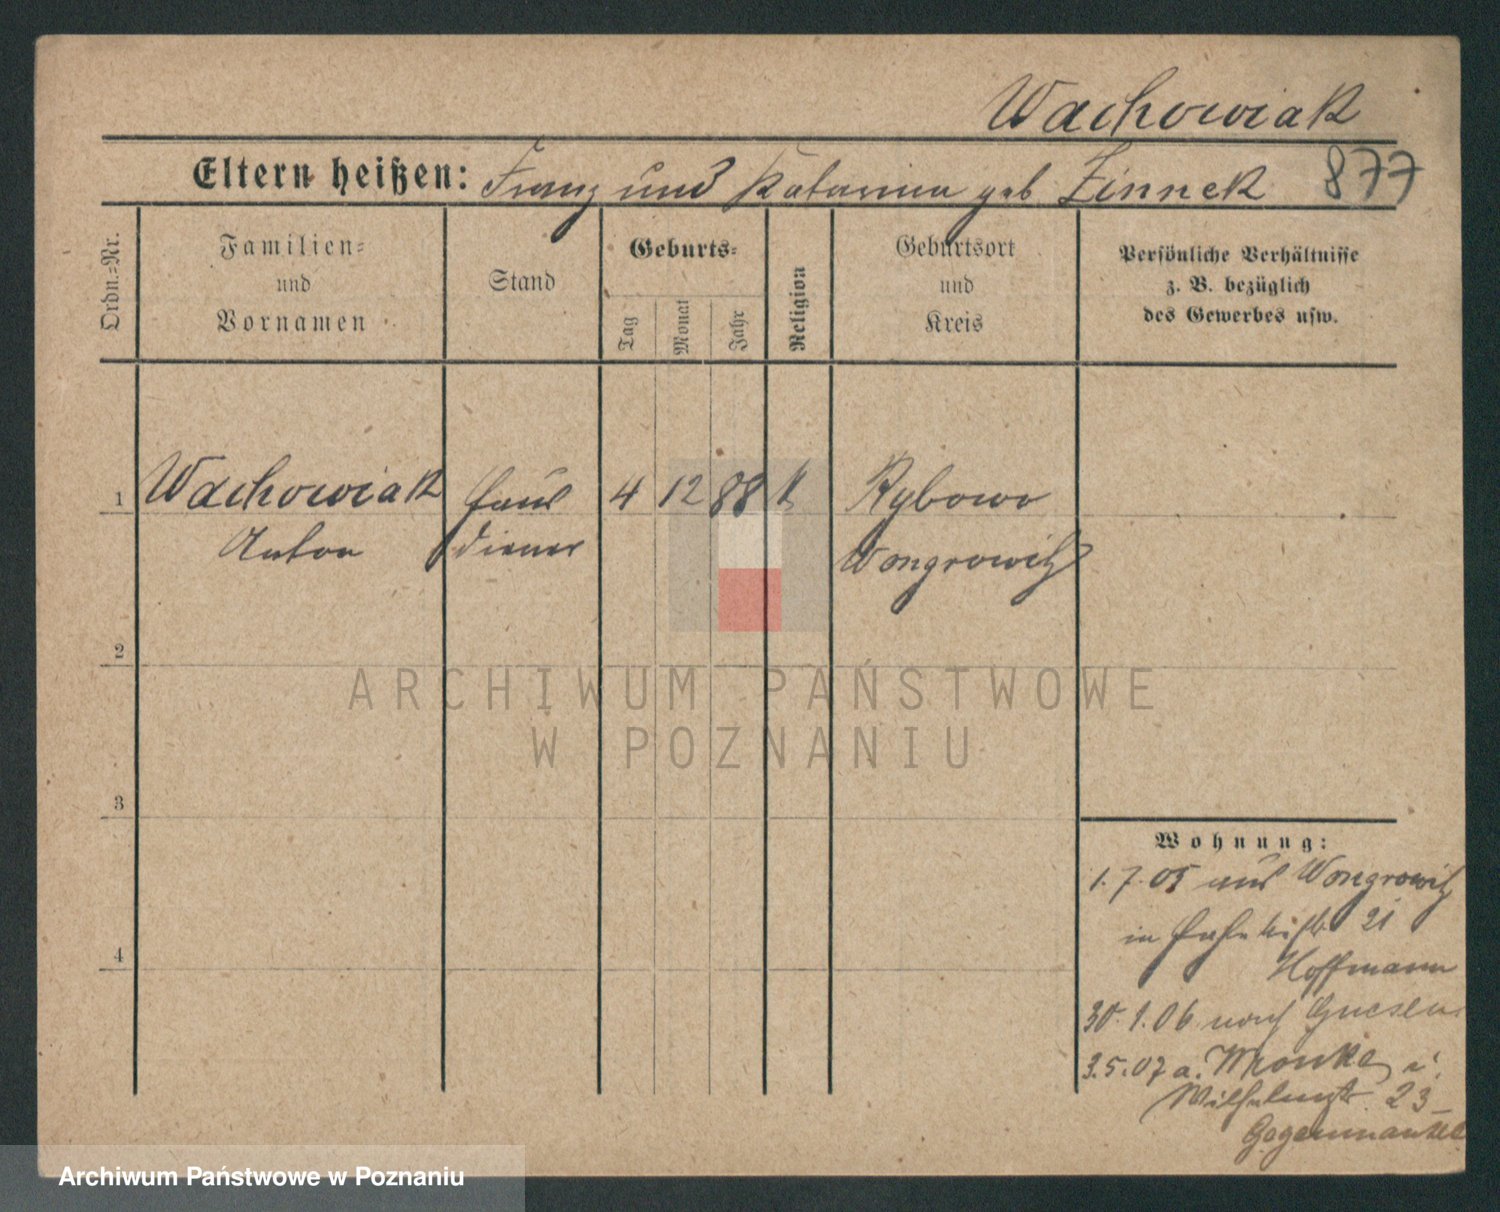 Wachowiak
Eltern heißen: Franz und Katarina geb Zinnek 877
Ordn.=Nr.
Familien=
und
Vornamen
Stand
Geburts=
Tag
Monat
Jahr
Religion
Geburtsort
und
Kreis
Persönliche Verhältnisse
z. B. bezüglich
des Gewerbes usw.
1 Wachowiak Haus 4 12 88 k Rybowo
Anton diener Wongrowitz
2
3
4
Wohnung:
1.7.05 aus Wongrowitz
in 21
Hoffmann
30.1.06 nach Gnesen
3.5.07 a. Wronke i.
Wilhelmstr. 23
ARCHIWUM PAŃSTWOWE
W POZNANIU
Archiwum Państwowe w Poznaniu